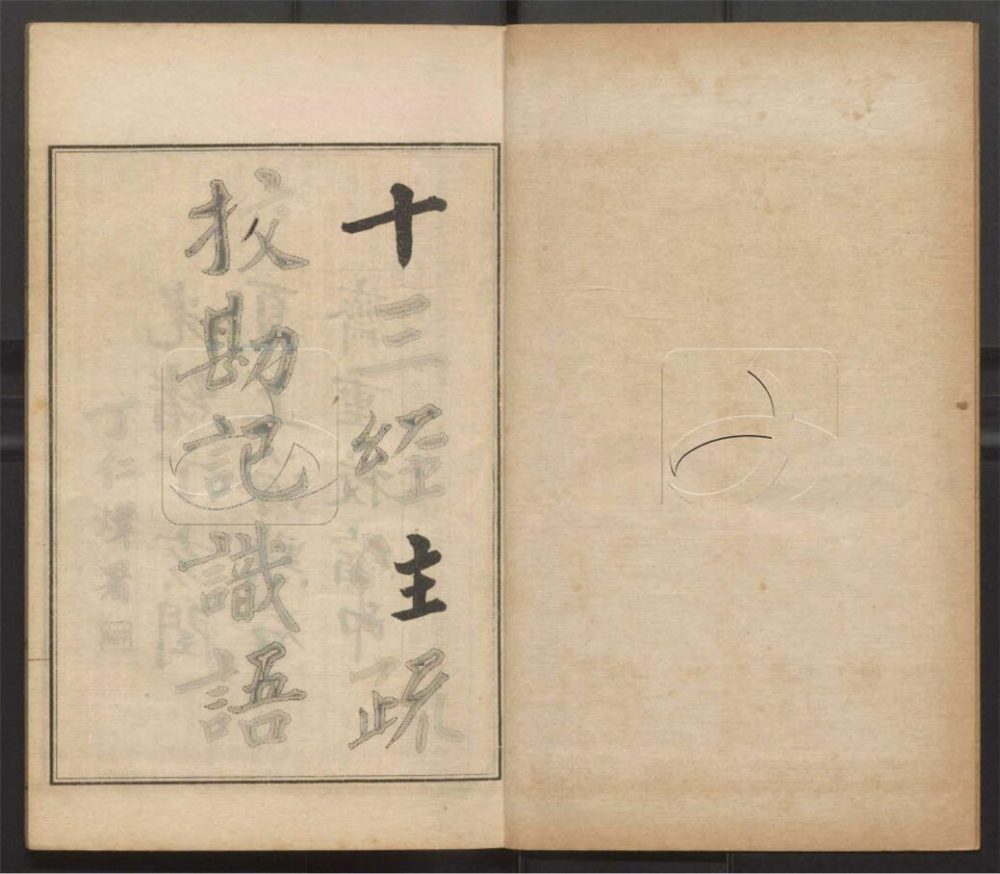 十三經主疏
挍勘記識語